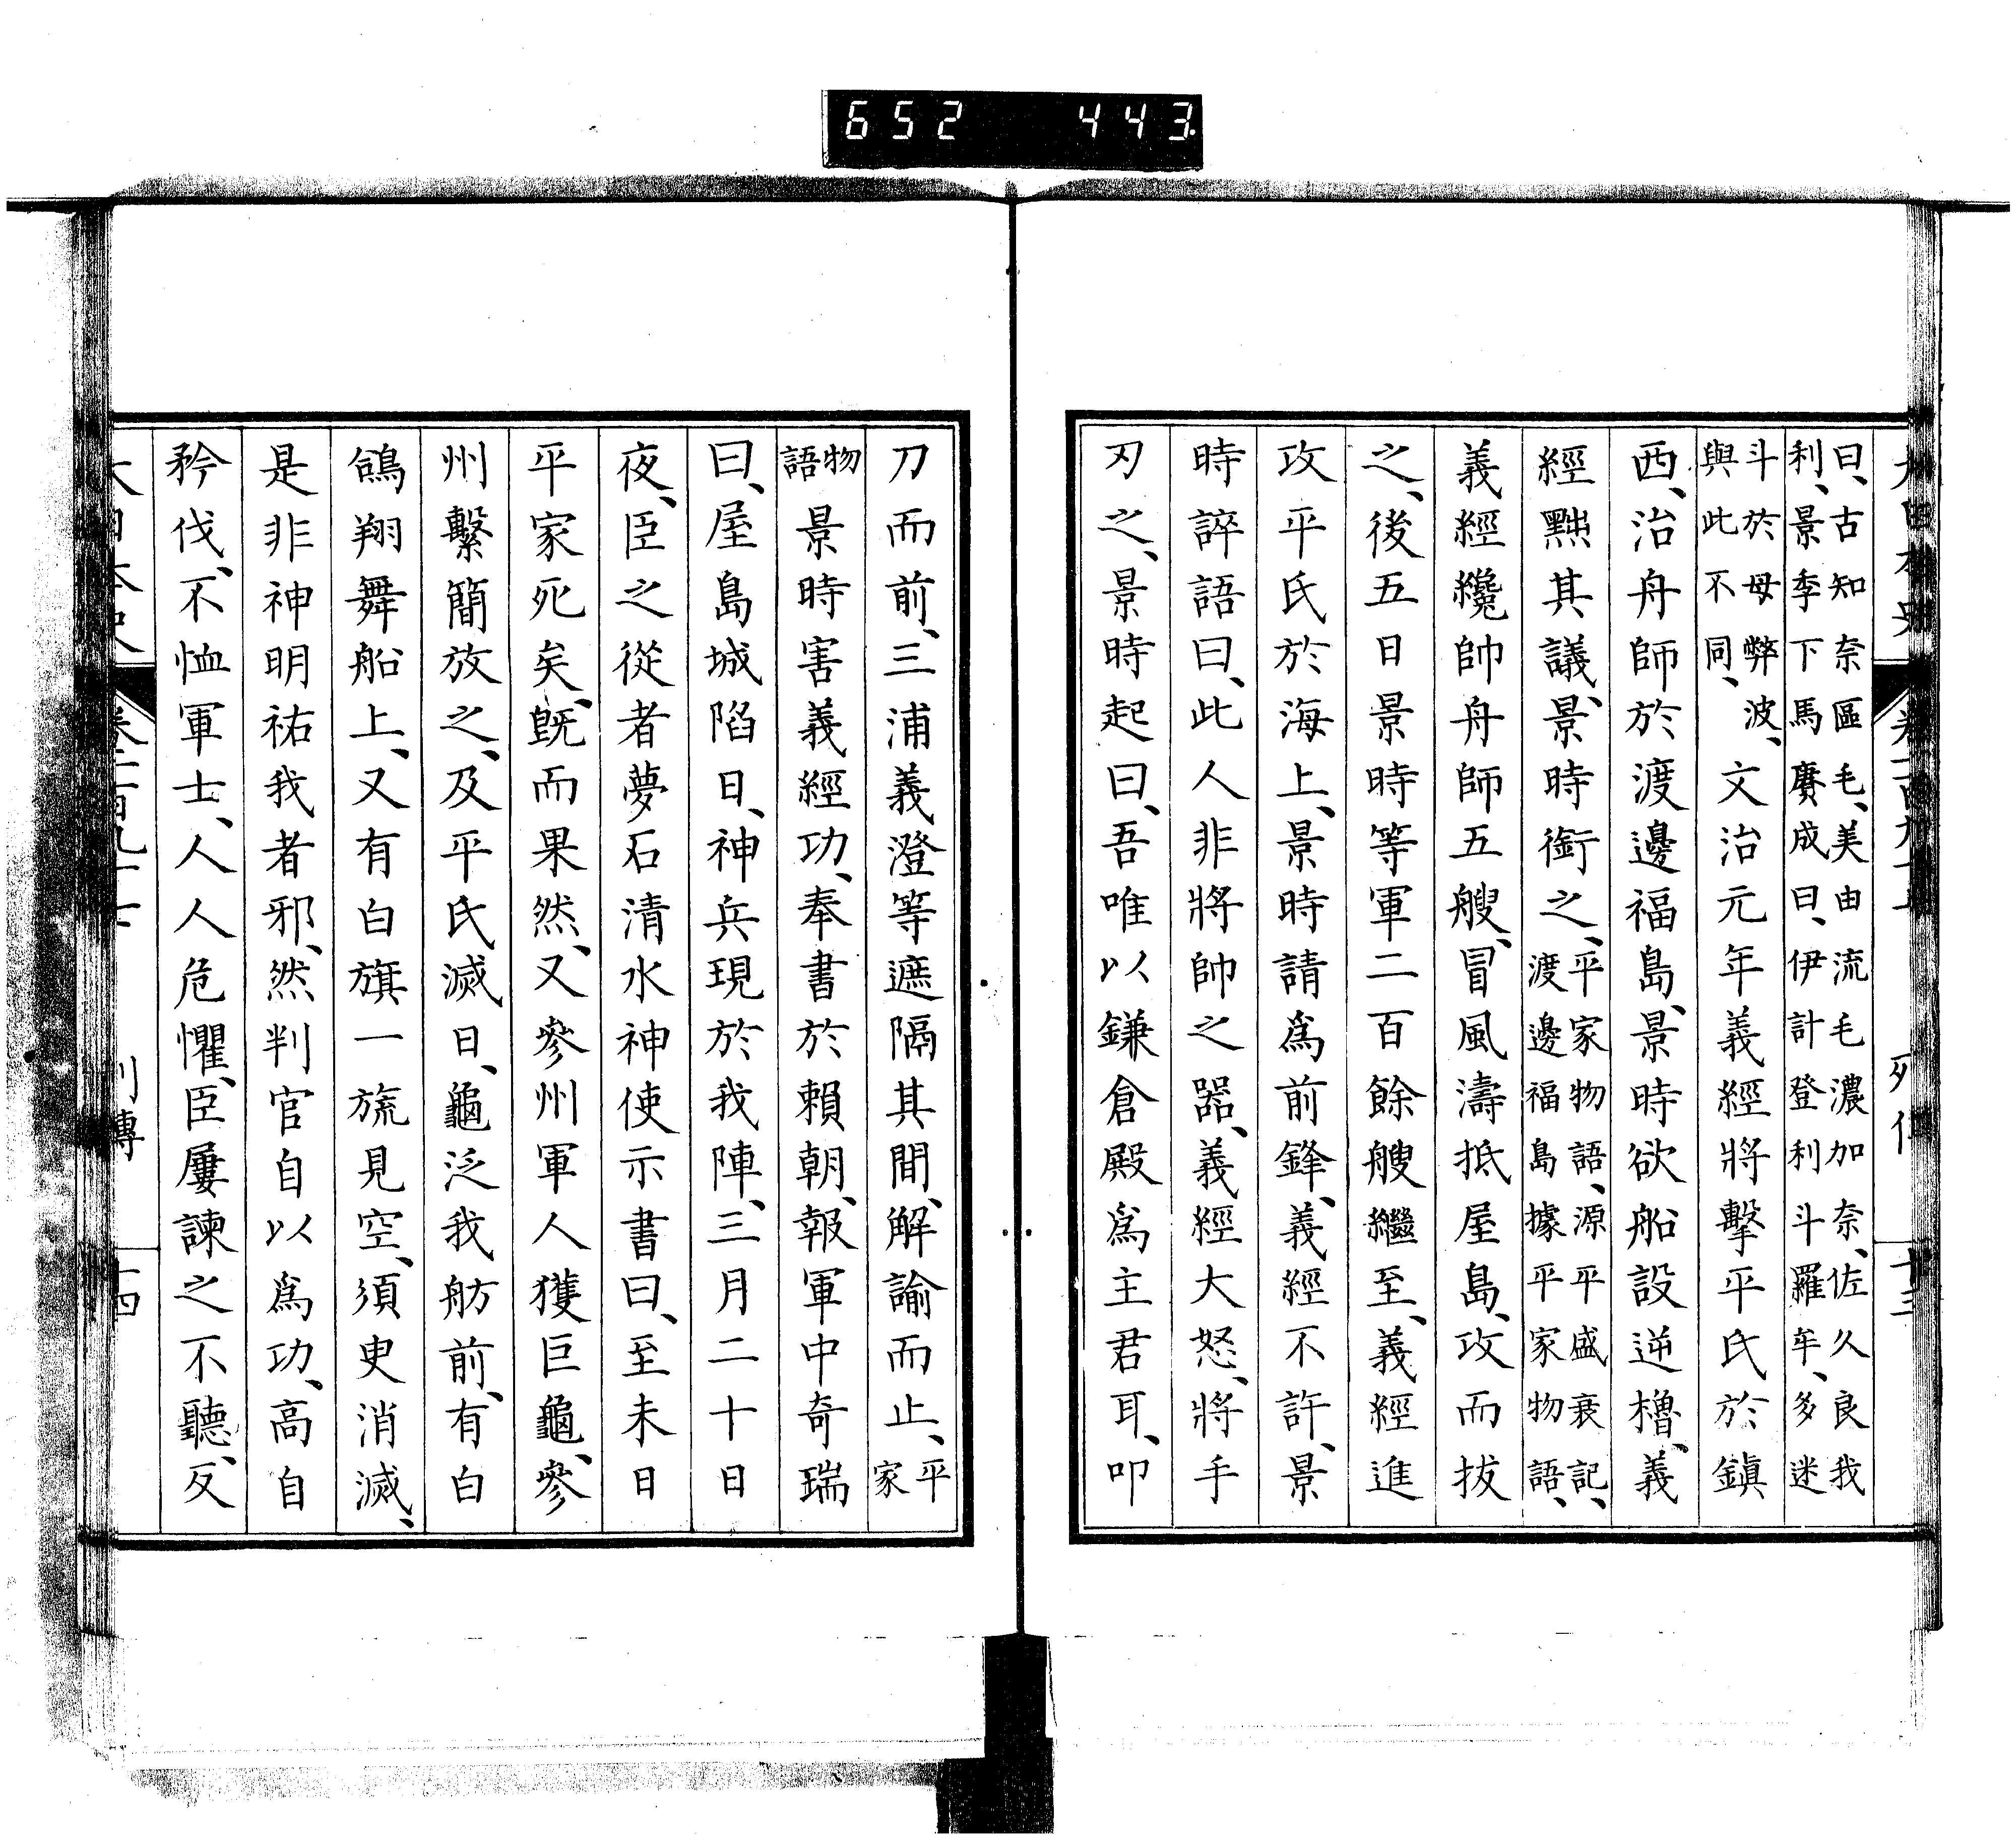 652 443.
曰、古知奈區毛、美由流毛濃加奈、佐久良我
利、景季下馬賡成曰、伊計登利斗羅牟、多迷
斗於母弊波、
與此不同、
文治元年義經將擊平氏於鎭
西、治舟師於渡邊福島、景時欲船設逆櫓、義
經黙其議、景時銜之、平家物語、源平盛衰記、渡邊福島據平家物語、
義經纔帥舟師五艘、冒風濤抵屋島、攻而拔
之、後五日景時等軍二百餘艘繼至、義經進
攻平氏於海上、景時請爲前鋒、義經不許、景
時誶語曰、此人非將帥之器、義經大怒、將手
刃之、景時起曰、吾唯以鎌倉殿爲主君耳、叩
刀而前、三浦義澄等遮隔其間、解諭而止、平家
物語景時害義經功、奉書於賴朝、報軍中奇瑞
曰、屋島城陷日、神兵現於我陣、三月二十日
夜、臣之從者夢石清水神使示書曰、至未日
平家死矣、既而果然、又參州軍人獲巨龜、參
州繫簡放之、及平氏滅日、龜泛我舫前、有白
鴿翔舞船上、又有白旗一旒見空、須臾消滅、
是非神明祐我者邪、然判官自以爲功、高自
矜伐、不恤軍士、人人危懼、臣屢諫之不聽、反